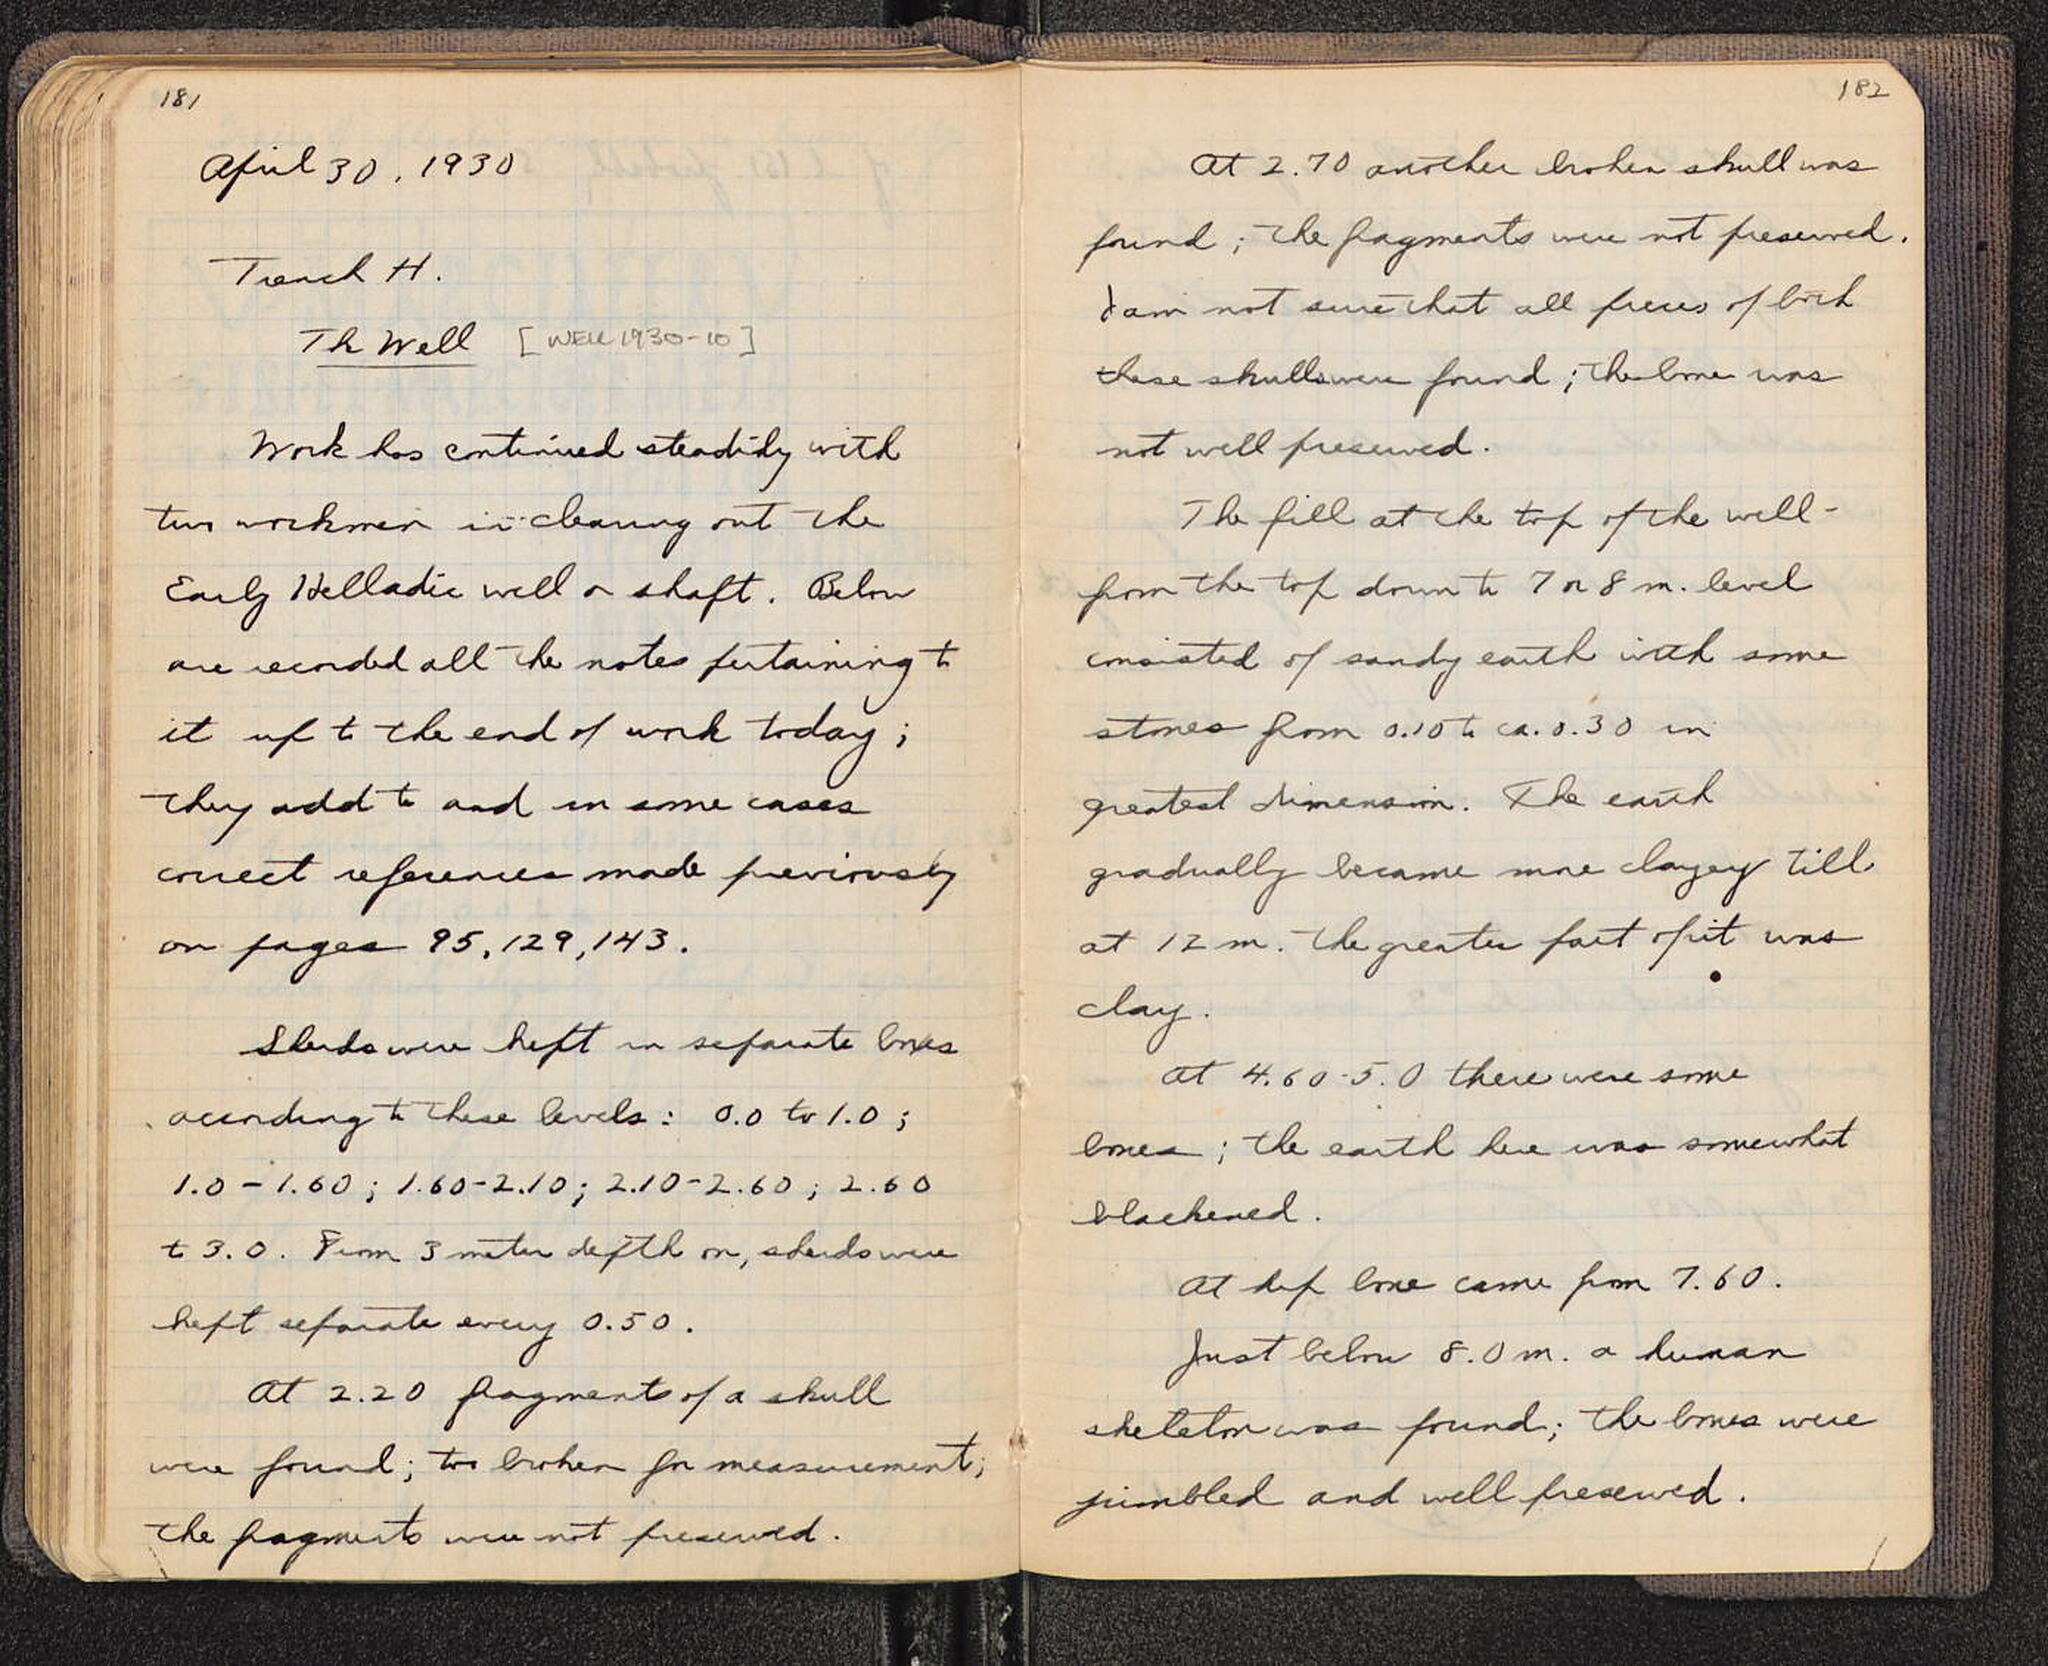 181
April 30, 1930
Trench H.
The Well [WELL 1930-10]
Work has continued steadily with
two workmen in clearing out the
Early Helladic well or shaft. Below
are recorded all the notes pertaining to
it up to the end of work today;
they add to and in some cases
correct references made previously
on pages 95, 129, 143.
Sherds were kept in separate boxes
according to these levels: 0.0 to 1.0;
1.0-1.60; 1.60-2.10; 2.10-2.60; 2.60
to 3.0. From 3 meter depth on, sherds were
kept separate every 0.50.
At 2.20 fragments of a skull
were found; too broken for measurement;
the fragments were not preserved.
182
At 2.70 another broken skull was
found; the fragments were not preserved.
I am not sure that all pieces of both
these skulls were found; the bone was
not well preserved.
The fill at the top of the well -
from the top down to 7 or 8 m. level
consisted of sandy earth with some
stones from 0.10 to ca. 0.30 in
greatest dimension. The earth
gradually became more clayey till
at 12 m. the greater part of it was
clay.
At 4.60-5.0 there were some
bones; the earth here was somewhat
blackened.
At bone came from 7.60.
Just below 8.0 m. a human
skeleton was found; the bones were
jumbled and well preserved.